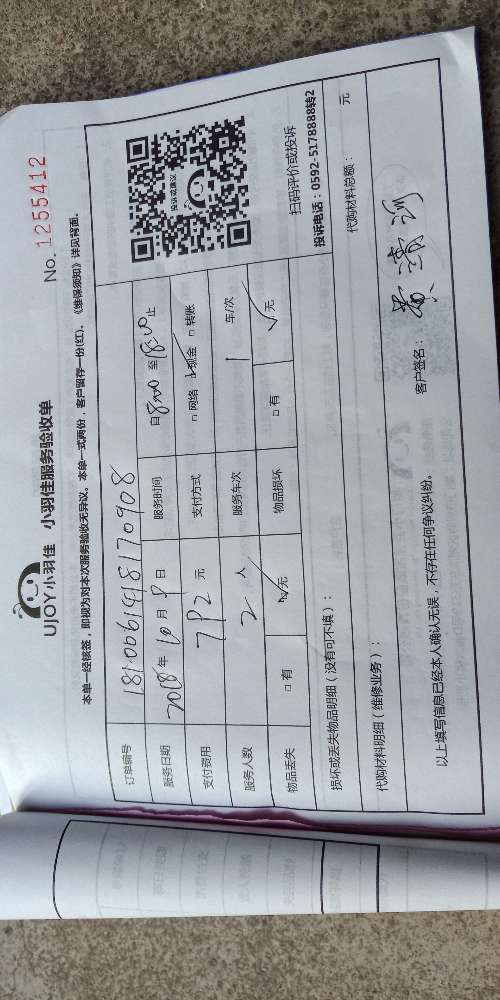 UJOY小羽佳 小羽佳服务验收单 No. 1255412
本单一经核签，即视为对本次服务验收无异议。本单一式两份，客户留存一份(红)。《维保须知》详见背面。
订单编号 1810061418170908
服务日期 2018年10月9日 服务时间 自8:00至18:00止
支付费用 792元 支付方式 □网络 ☑现金 □转账
服务人数 2人 服务车次 1车/次
物品丢失 □有 ☑无 物品损坏 □有 ☑无
投诉或建议
扫码评价或投诉
投诉电话：0592-5178888转2
损坏或丢失物品明细（没有可不填）：
代购材料明细（维修业务）： 代购材料总额： 元
客户签名：
以上填写信息已经本人确认无误，不存在任何争议纠纷。